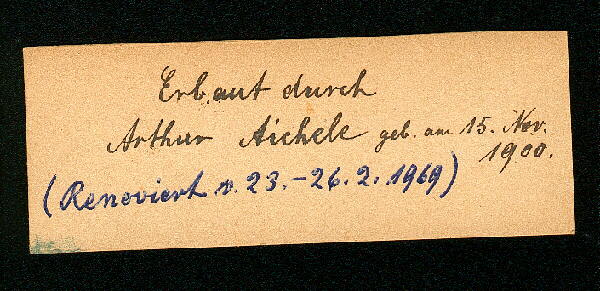 Erbaut durch
Arthur Aichele geb. am 15. Nov.
1900.
(Renoviert v. 23.-26.2.1969)